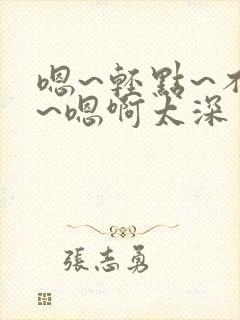 嗯~輕點~不
~嗯啊太深
張志勇